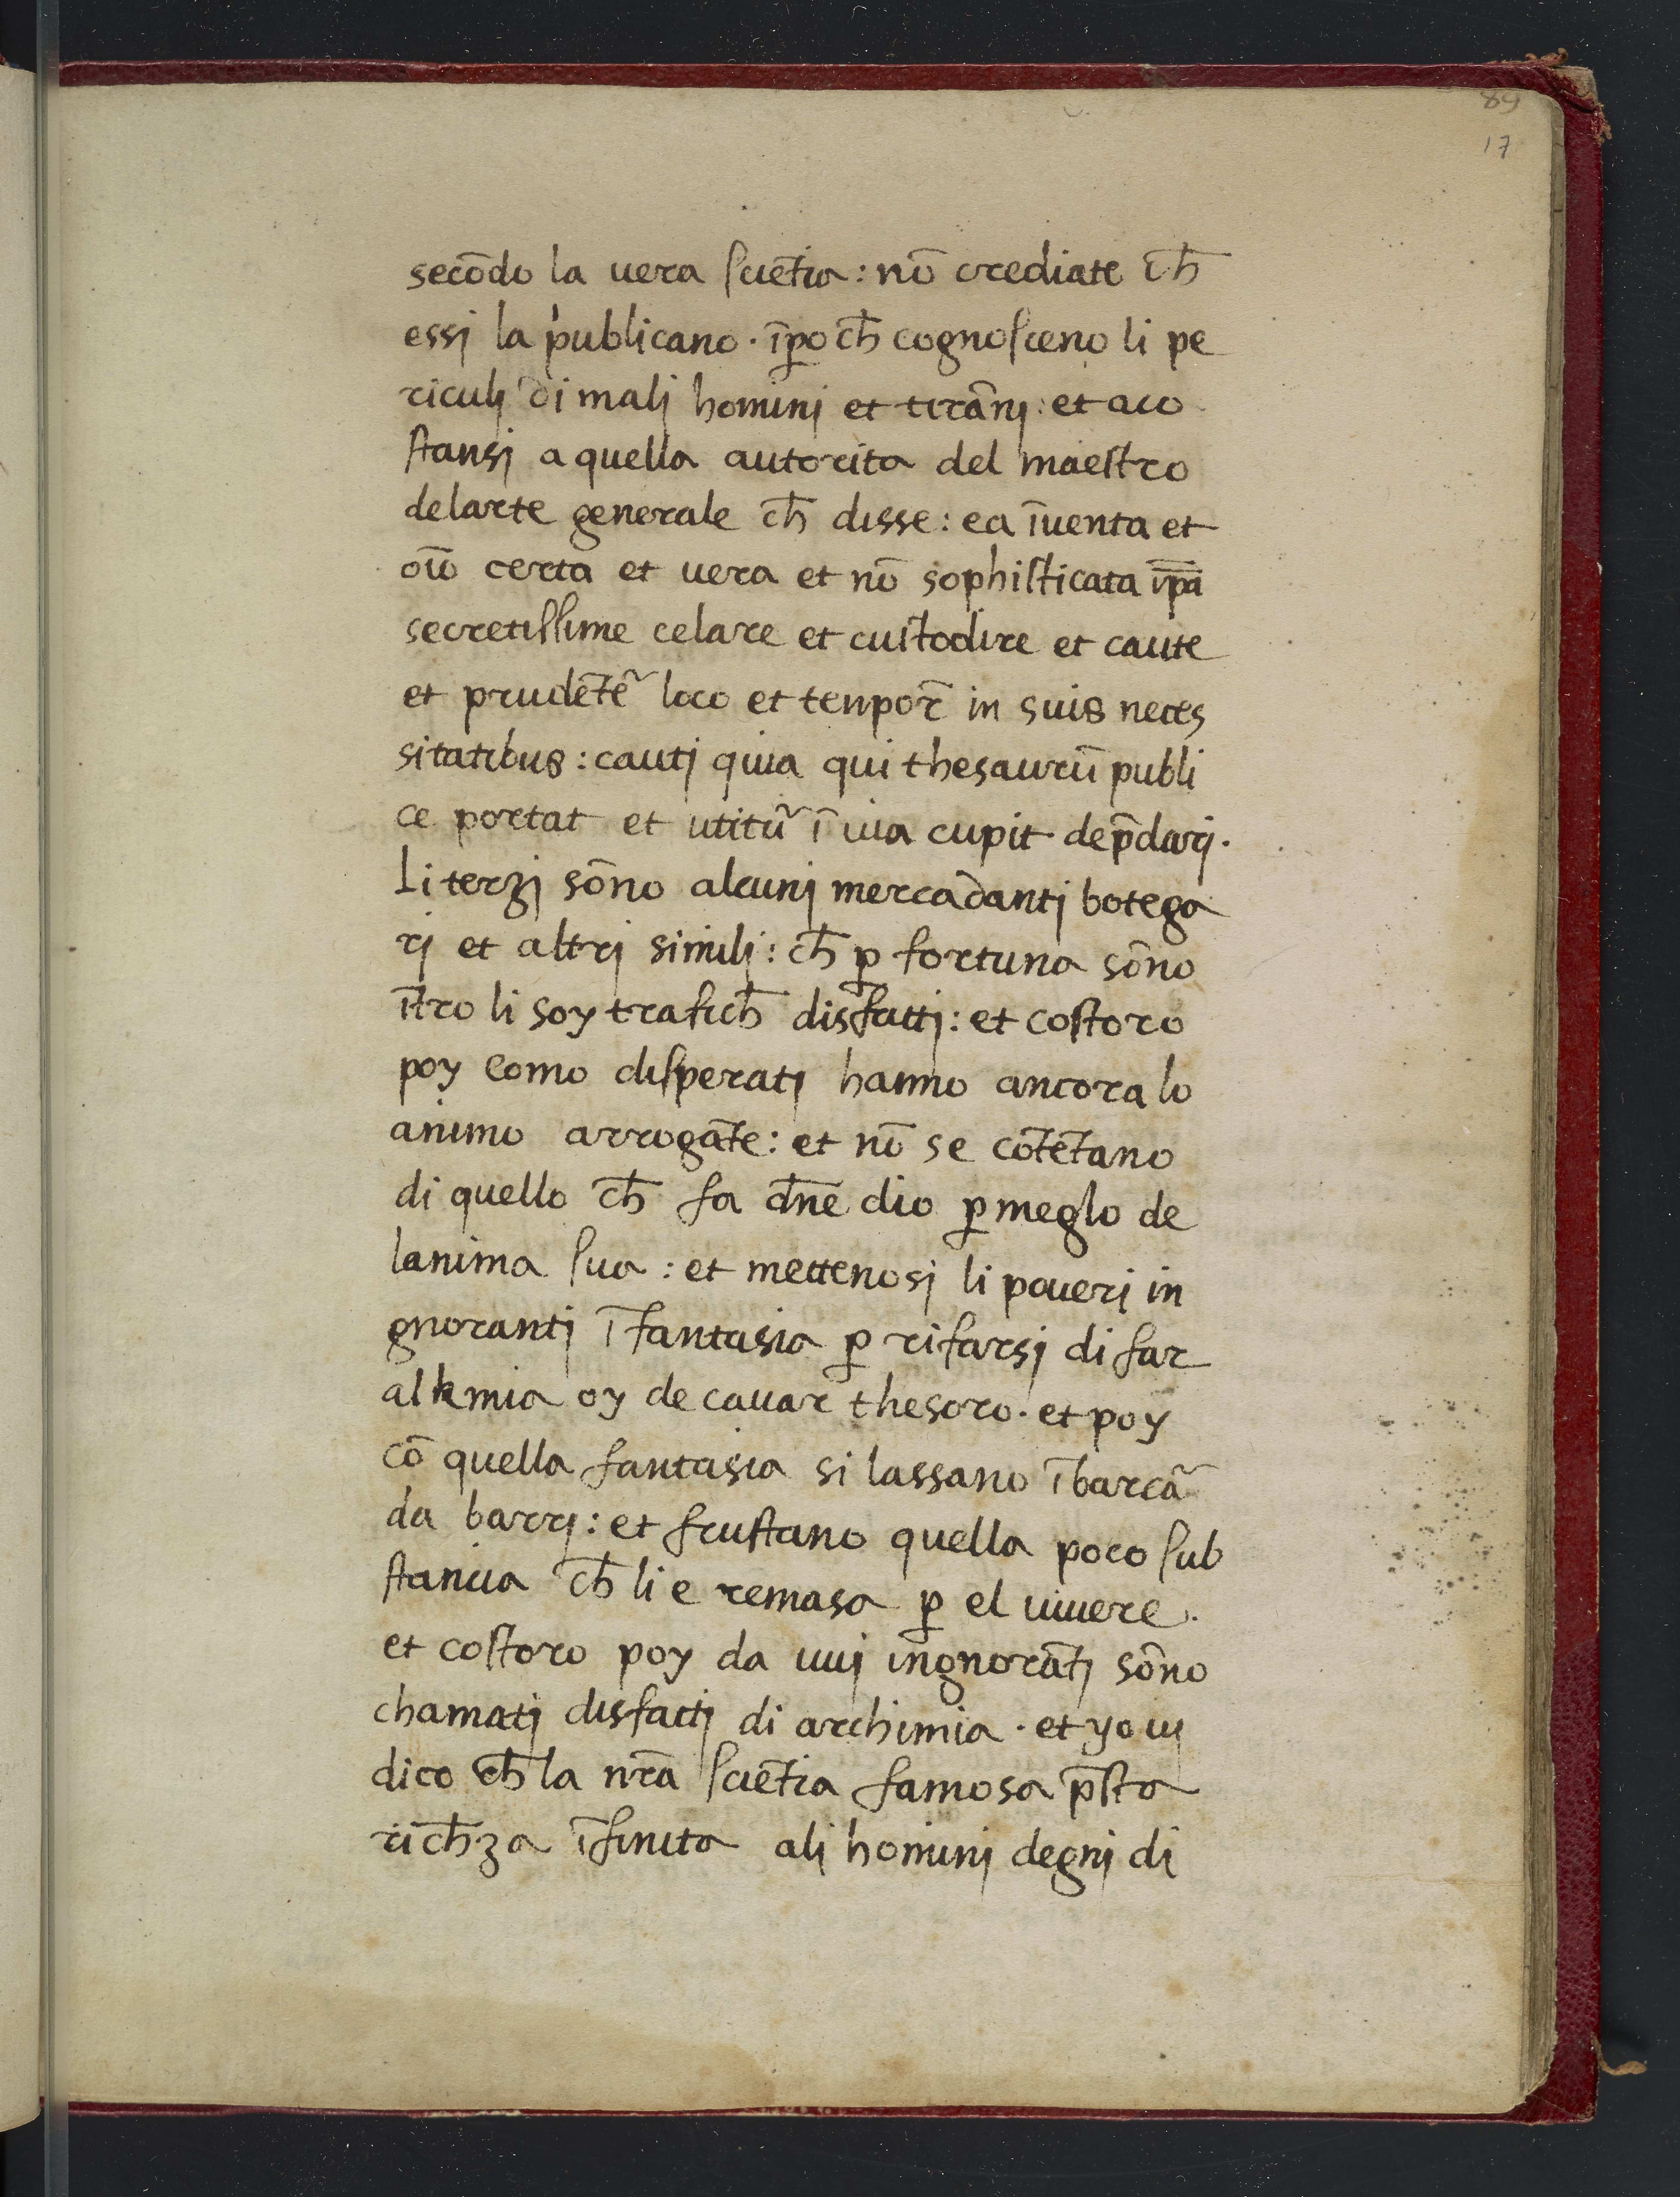 89
17
secōdo la uera ſciēt̄ia: nō crediate ch̄
essj la publicano · īꝑoch̄ cognoſceno li pe
riculj di malj hominj et tirānj: et aco
ſtansj a quella autorita del maeſtro
delarte generale ch̄ disse: ea īuenta et
oīo certa et uera et nō sophiſticata ip̄a
secretiſſime celare et cuſtodire et caute
et prudēt̄e˜ loco et tenpor̄ in suis neces
sitatibus: cautj quia qui thesaurū publi
ce portat et utitu˜ ī uia cupit dep̄darj.
Li terzj sōno alcunj mercadantj botega
rj et altrj similj: ch̄ ꝑ fortuna sōno
īt̄ro li soy trafich̄ disfattj: et coſtoro
poy como diſperatj hanno ancora lo
animo arrogāt̄e: et nō se cōt̄ēt̄ano
di quello ch̄ fa dn̄e dio ꝑ meglo de
lanima ſua: et mettenosj li pouerj in
gnorantj ī fantasia ꝑ rifarsj di far
alkmia oy de cauar thesoro · et poy
cō quella fantasia si lassano ībarca˜
da barrj: et fruſtano quella poco ſub
ſtancia ch̄ li e remasa ꝑ el uiuere.
et coſtoro poy da uuj ingnorāt̄j sōno
chamatj disfattj di archimia · et yo uj
dico ch̄ la nr̄a ſciēt̄ia famosa p̄ſta
rich̄za īfinita alj hominj degnj di